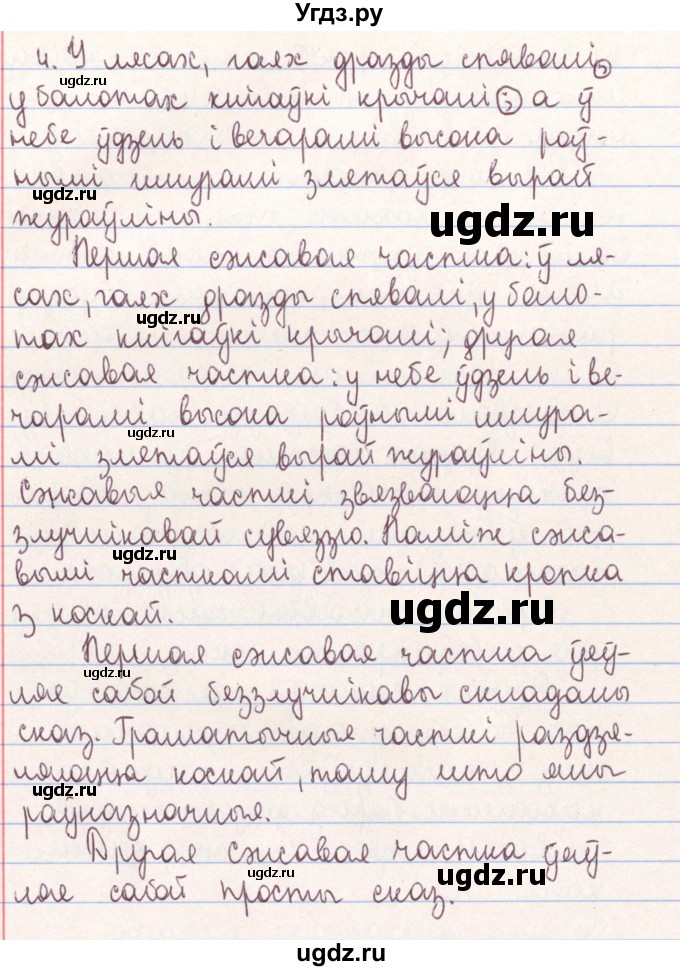 Угдз.ру
4. У лясах, гаях дразды спявалі,
у балотах кнігаўкі крычалі; а ў
небе ўдзень і вечарамі высока роў-
нымі шнурамі злятаўся вырай
жураўліны.
Першая сэнсавая частка: ў ля-
сах, гаях дразды спявалі, у бало-
тах кнігаўкі крычалі; другая
сэнсавая частка: у небе ўдзень і ве-
чарамі высока роўнымі шнура-
мі злятаўся вырай жураўліны.
Сэнсавыя часткі звязваюцца бяз-
злучнікавай сувяззю. Паміж сэнса-
вымі часткамі ставіцца кропка
з коскай.
Першая сэнсавая частка ўяў-
ляе сабой бяззлучнікавы складаны
сказ. Граматычныя часткі раздзя-
ляюцца коскай, таму што яны
раўназначныя.
Другая сэнсавая частка ўяў-
ляе сабой просты сказ.
ugdz.ru
ugdz.ru
ugdz.ru
ugdz.ru
ugdz.ru
ugdz.ru
ugdz.ru
ugdz.ru
ugdz.ru
ugdz.ru
ugdz.ru
ugdz.ru
ugdz.ru